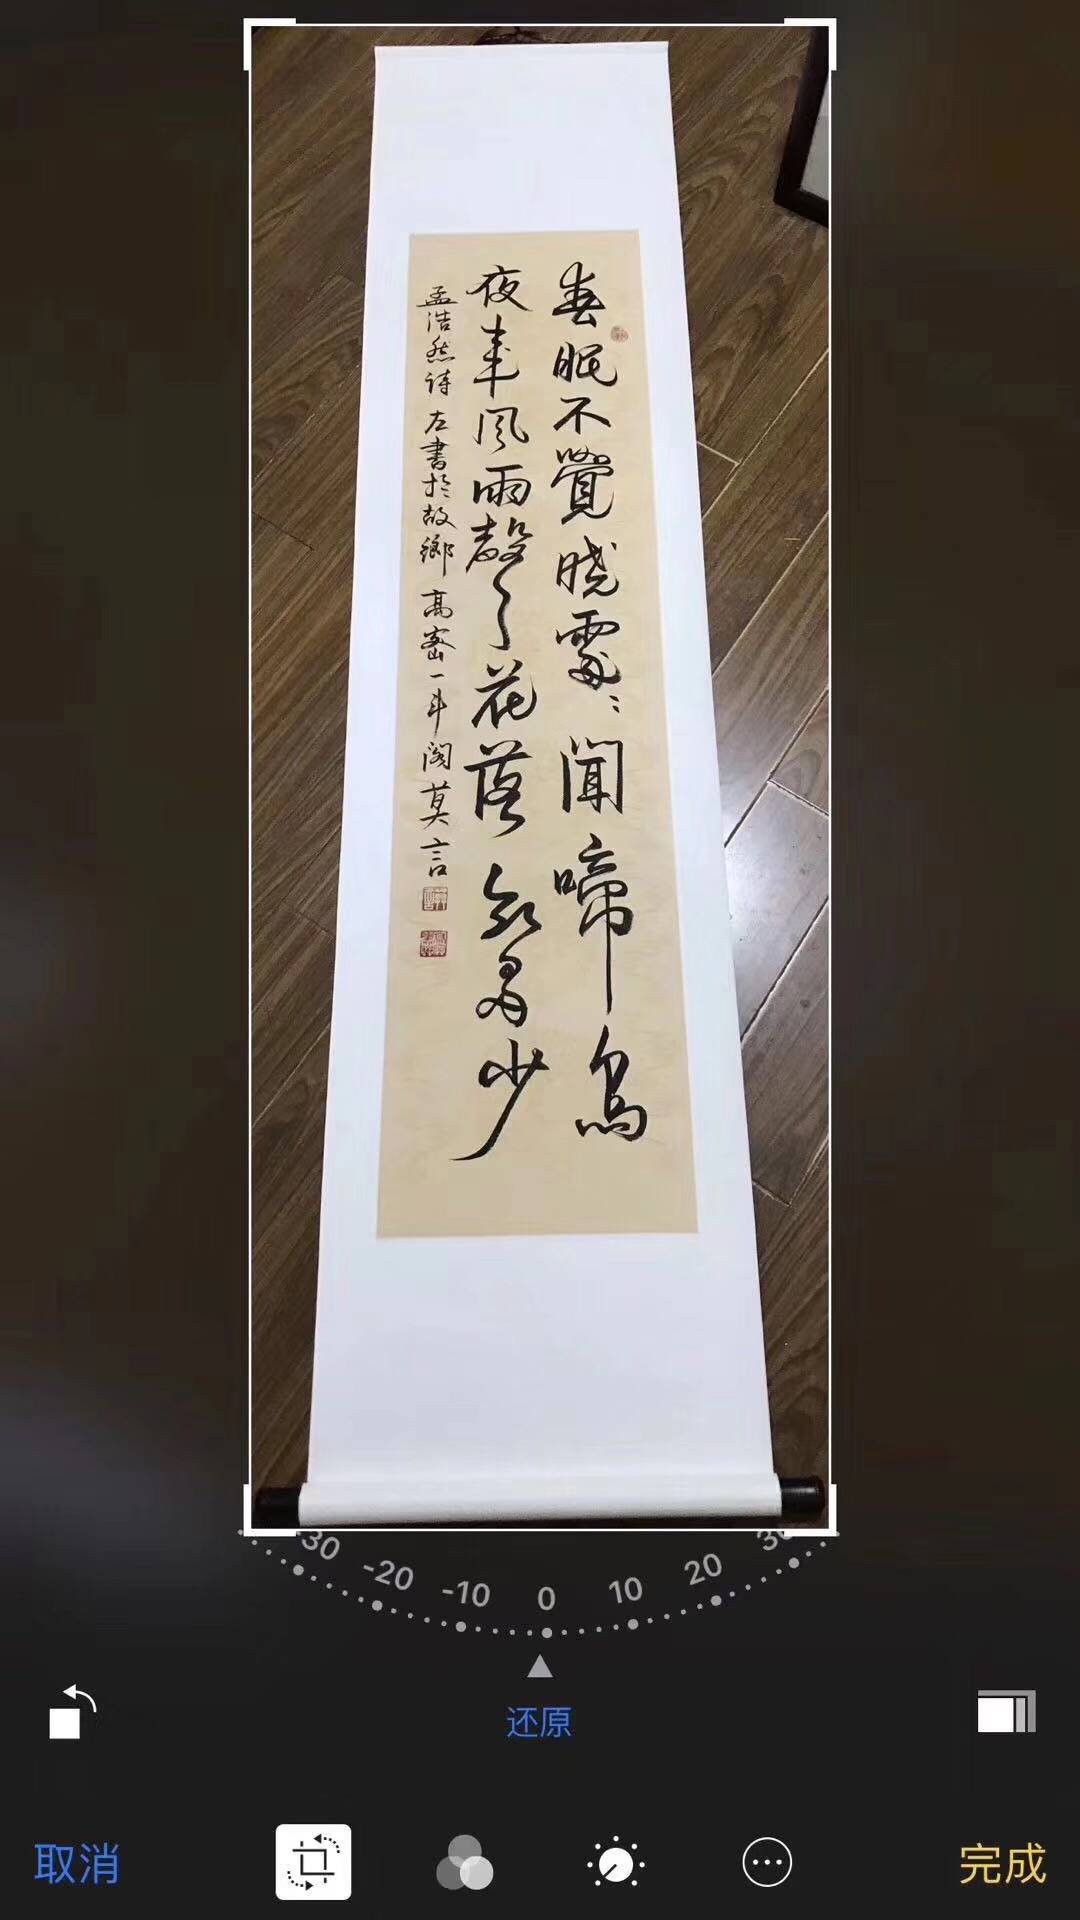 春眠不覺曉處〻聞啼鳥
夜来風雨聲花落知多少
孟浩然诗 左書於故鄉 高密一斗阁莫言
-30 -20 -10 0 10 20 30
还原
取消
完成